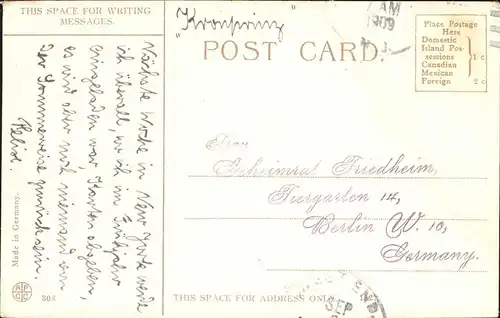 THIS SPACE FOR WRITING
MESSAGES.
"Kronprinz"
AM
1909
N. J.
POST CARD.
Place Postage
Here
Domestic
Island Pos-
sessions
Canadian
Mexican
1 c
Foreign 2 c
Nächste Woche in New York werde
ich überall, wo ich im Frühjahr
eingeladen war, Karten abgeben,
es wird aber noch niemand von
der Sommerreise zurück sein.
Felix.
Frau
Geheimrat Friedheim,
Tiergarten 14,
Berlin W. 10,
Germany.
Made in Germany.
308
THIS SPACE FOR ADDRESS ONLY.
SEP